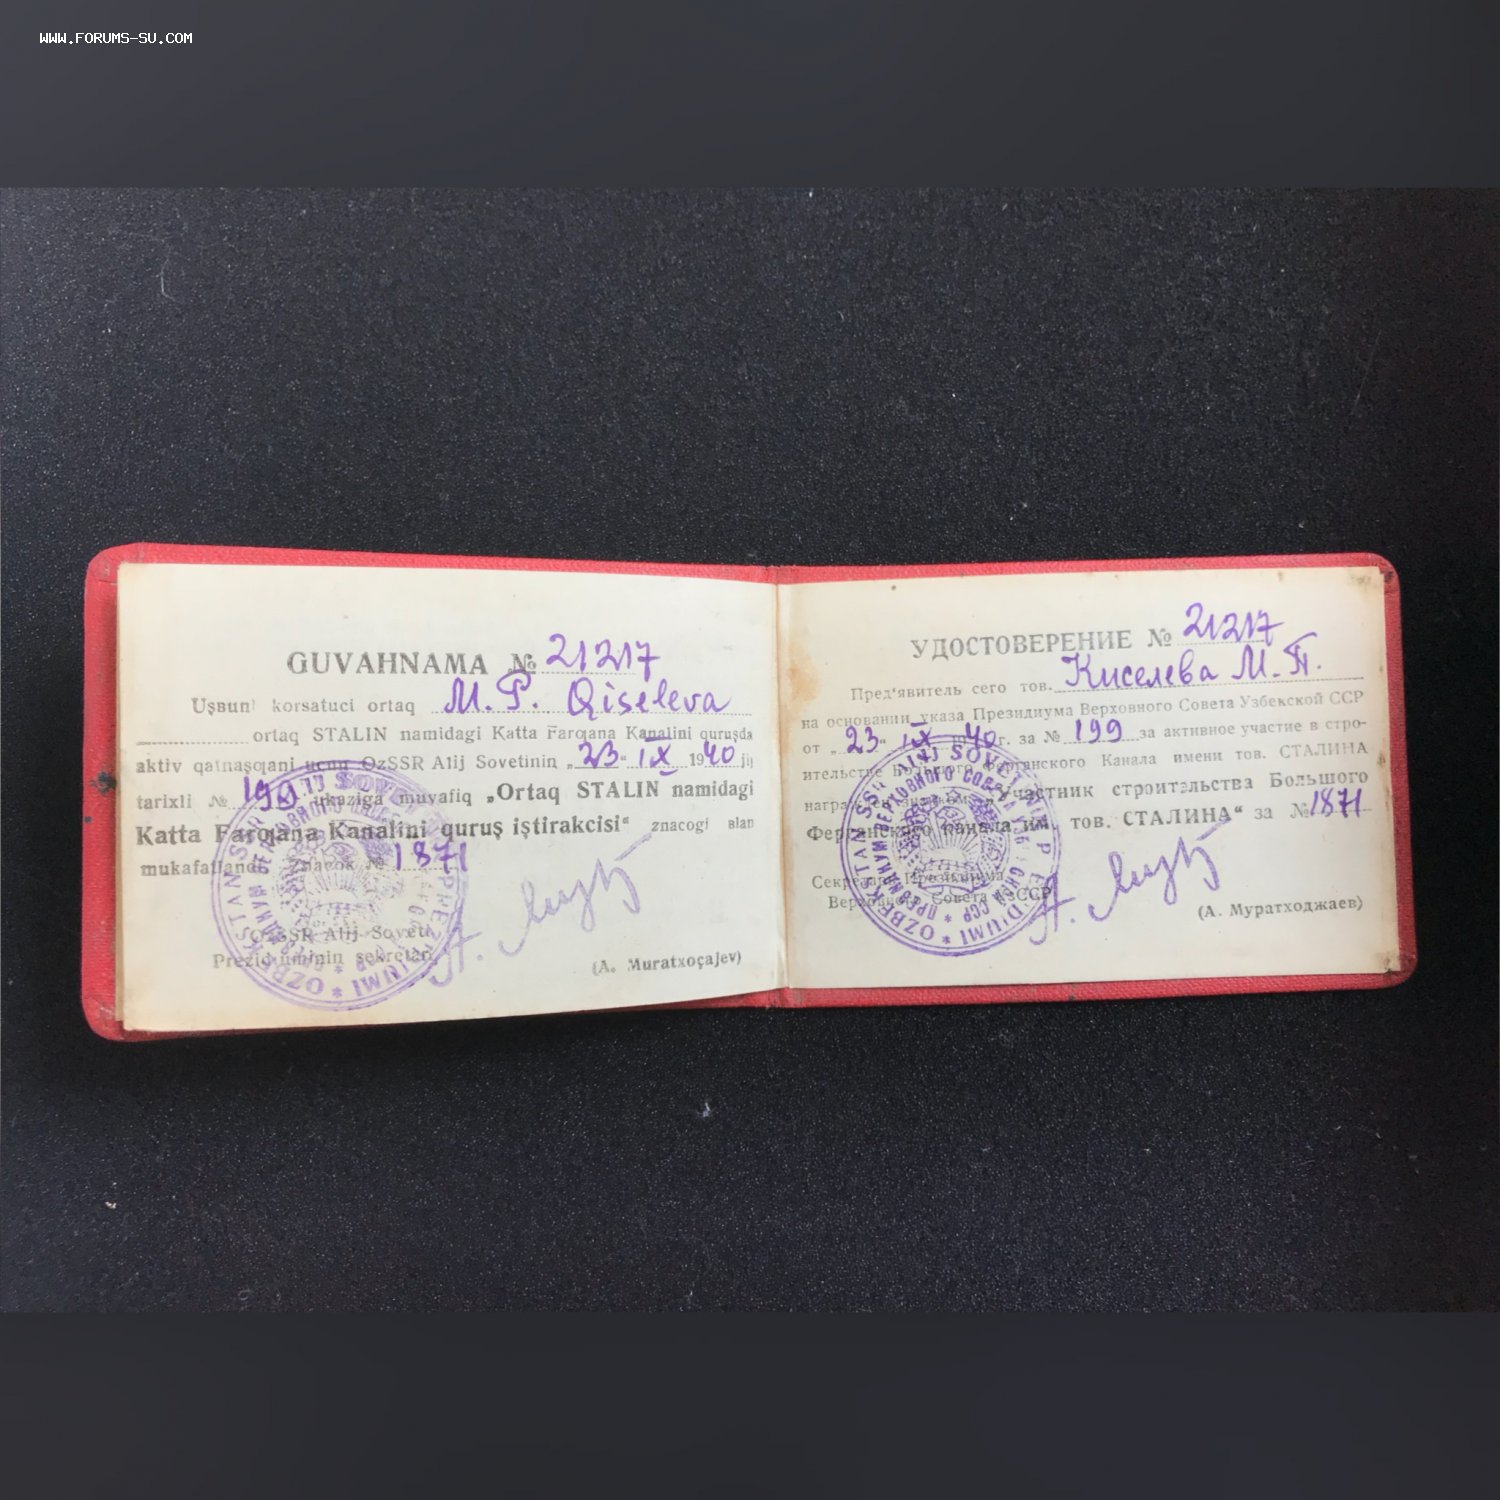 WWW.FORUMS-SU.COM
GUVAHNAMA № 21217
Uşвuni korsatuci ortaq M. P. Qiseleva
ortaq STALIN namidagi Katta Farƣana Kanalini quruşda
aktiv qatnaşqani ucun OzSSR Alij Sovetinin „23“ IX 1940 jij
tarixli № 199 ukaziga muvafiq „Ortaq STALIN namidagi
Katta Farƣana Kanalini quruş iştirakcisi“ znacogi вlan
mukafatlandi Znacok № 1871
OzSSR Alij Soveti
Prezidiuminin sekretari
(A. Muratxoçajev)
УДОСТОВЕРЕНИЕ № 21217
Пред'явитель сего тов. Киселева М. П.
на основании указа Президиума Верховного Совета Узбекской ССР
от „23“ IX 1940 г. за № 199 за активное участие в стро-
ительстве Большого Ферганского Канала имени тов. СТАЛИНА
награжден значком „Участник строительства Большого
Ферганского канала им. тов. СТАЛИНА“ за № 1871
Секретарь Президиума
Верховного Совета УзССР
(А. Муратходжаев)
OZBEKSTAN SSR ALIJ SOVETI PREZIDIUMI
ПРЕЗИДИУМ ВЕРХОВНОГО СОВЕТА УЗБЕКСКОЙ ССР